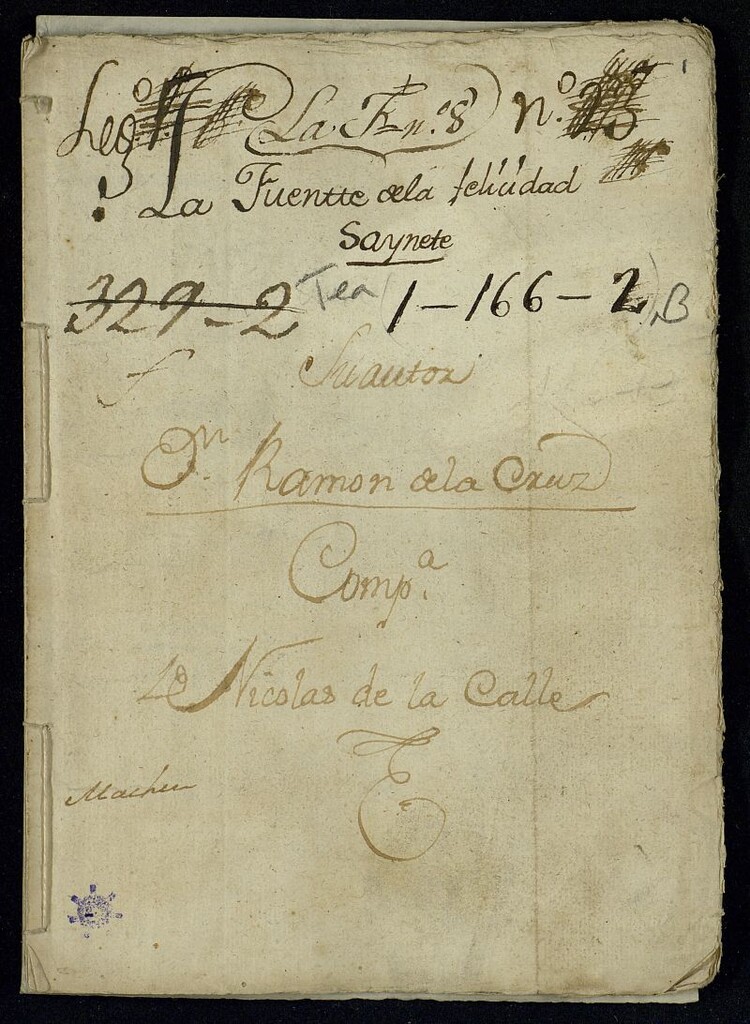 Leg.º La F n.º 8 n.º
La Fuentte de la felicidad
Saynete
329-2 Tea 1-166-2, B
Su autor
Dn. Ramon de la Cruz
Comp.ª
De Nicolas de la Calle